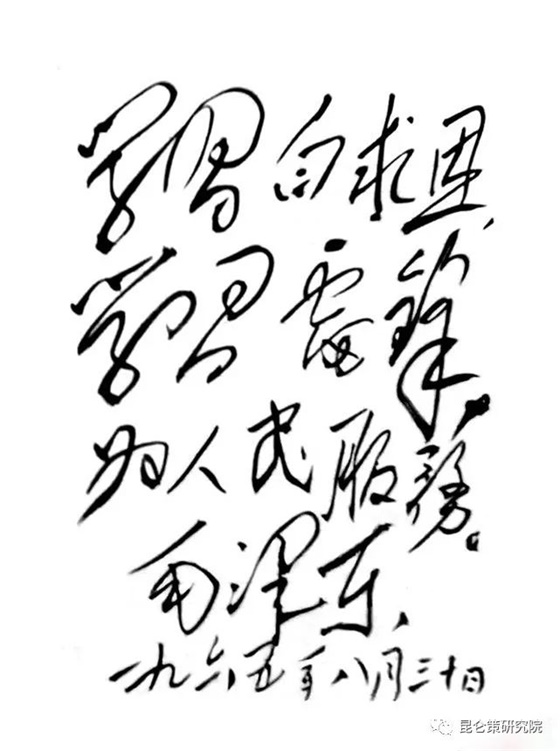 学习白求恩，
学习雷锋。
为人民服務。
毛泽东
一九六五年八月三十日
昆仑策研究院